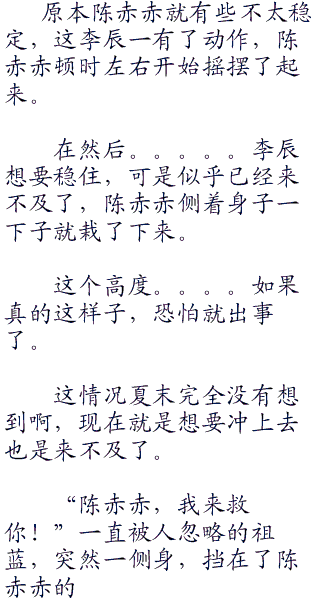 原本陈赤赤就有些不太稳
定，这李辰一有了动作，陈
赤赤顿时左右开始摇摆了起
来。
在然后。。。。。李辰
想要稳住，可是似乎已经来
不及了，陈赤赤侧着身子一
下子就栽了下来。
这个高度。。。。如果
真的这样子，恐怕就出事
了。
这情况夏末完全没有想
到啊，现在就是想要冲上去
也是来不及了。
“陈赤赤，我来救
你！”一直被人忽略的祖
蓝，突然一侧身，挡在了陈
赤赤的